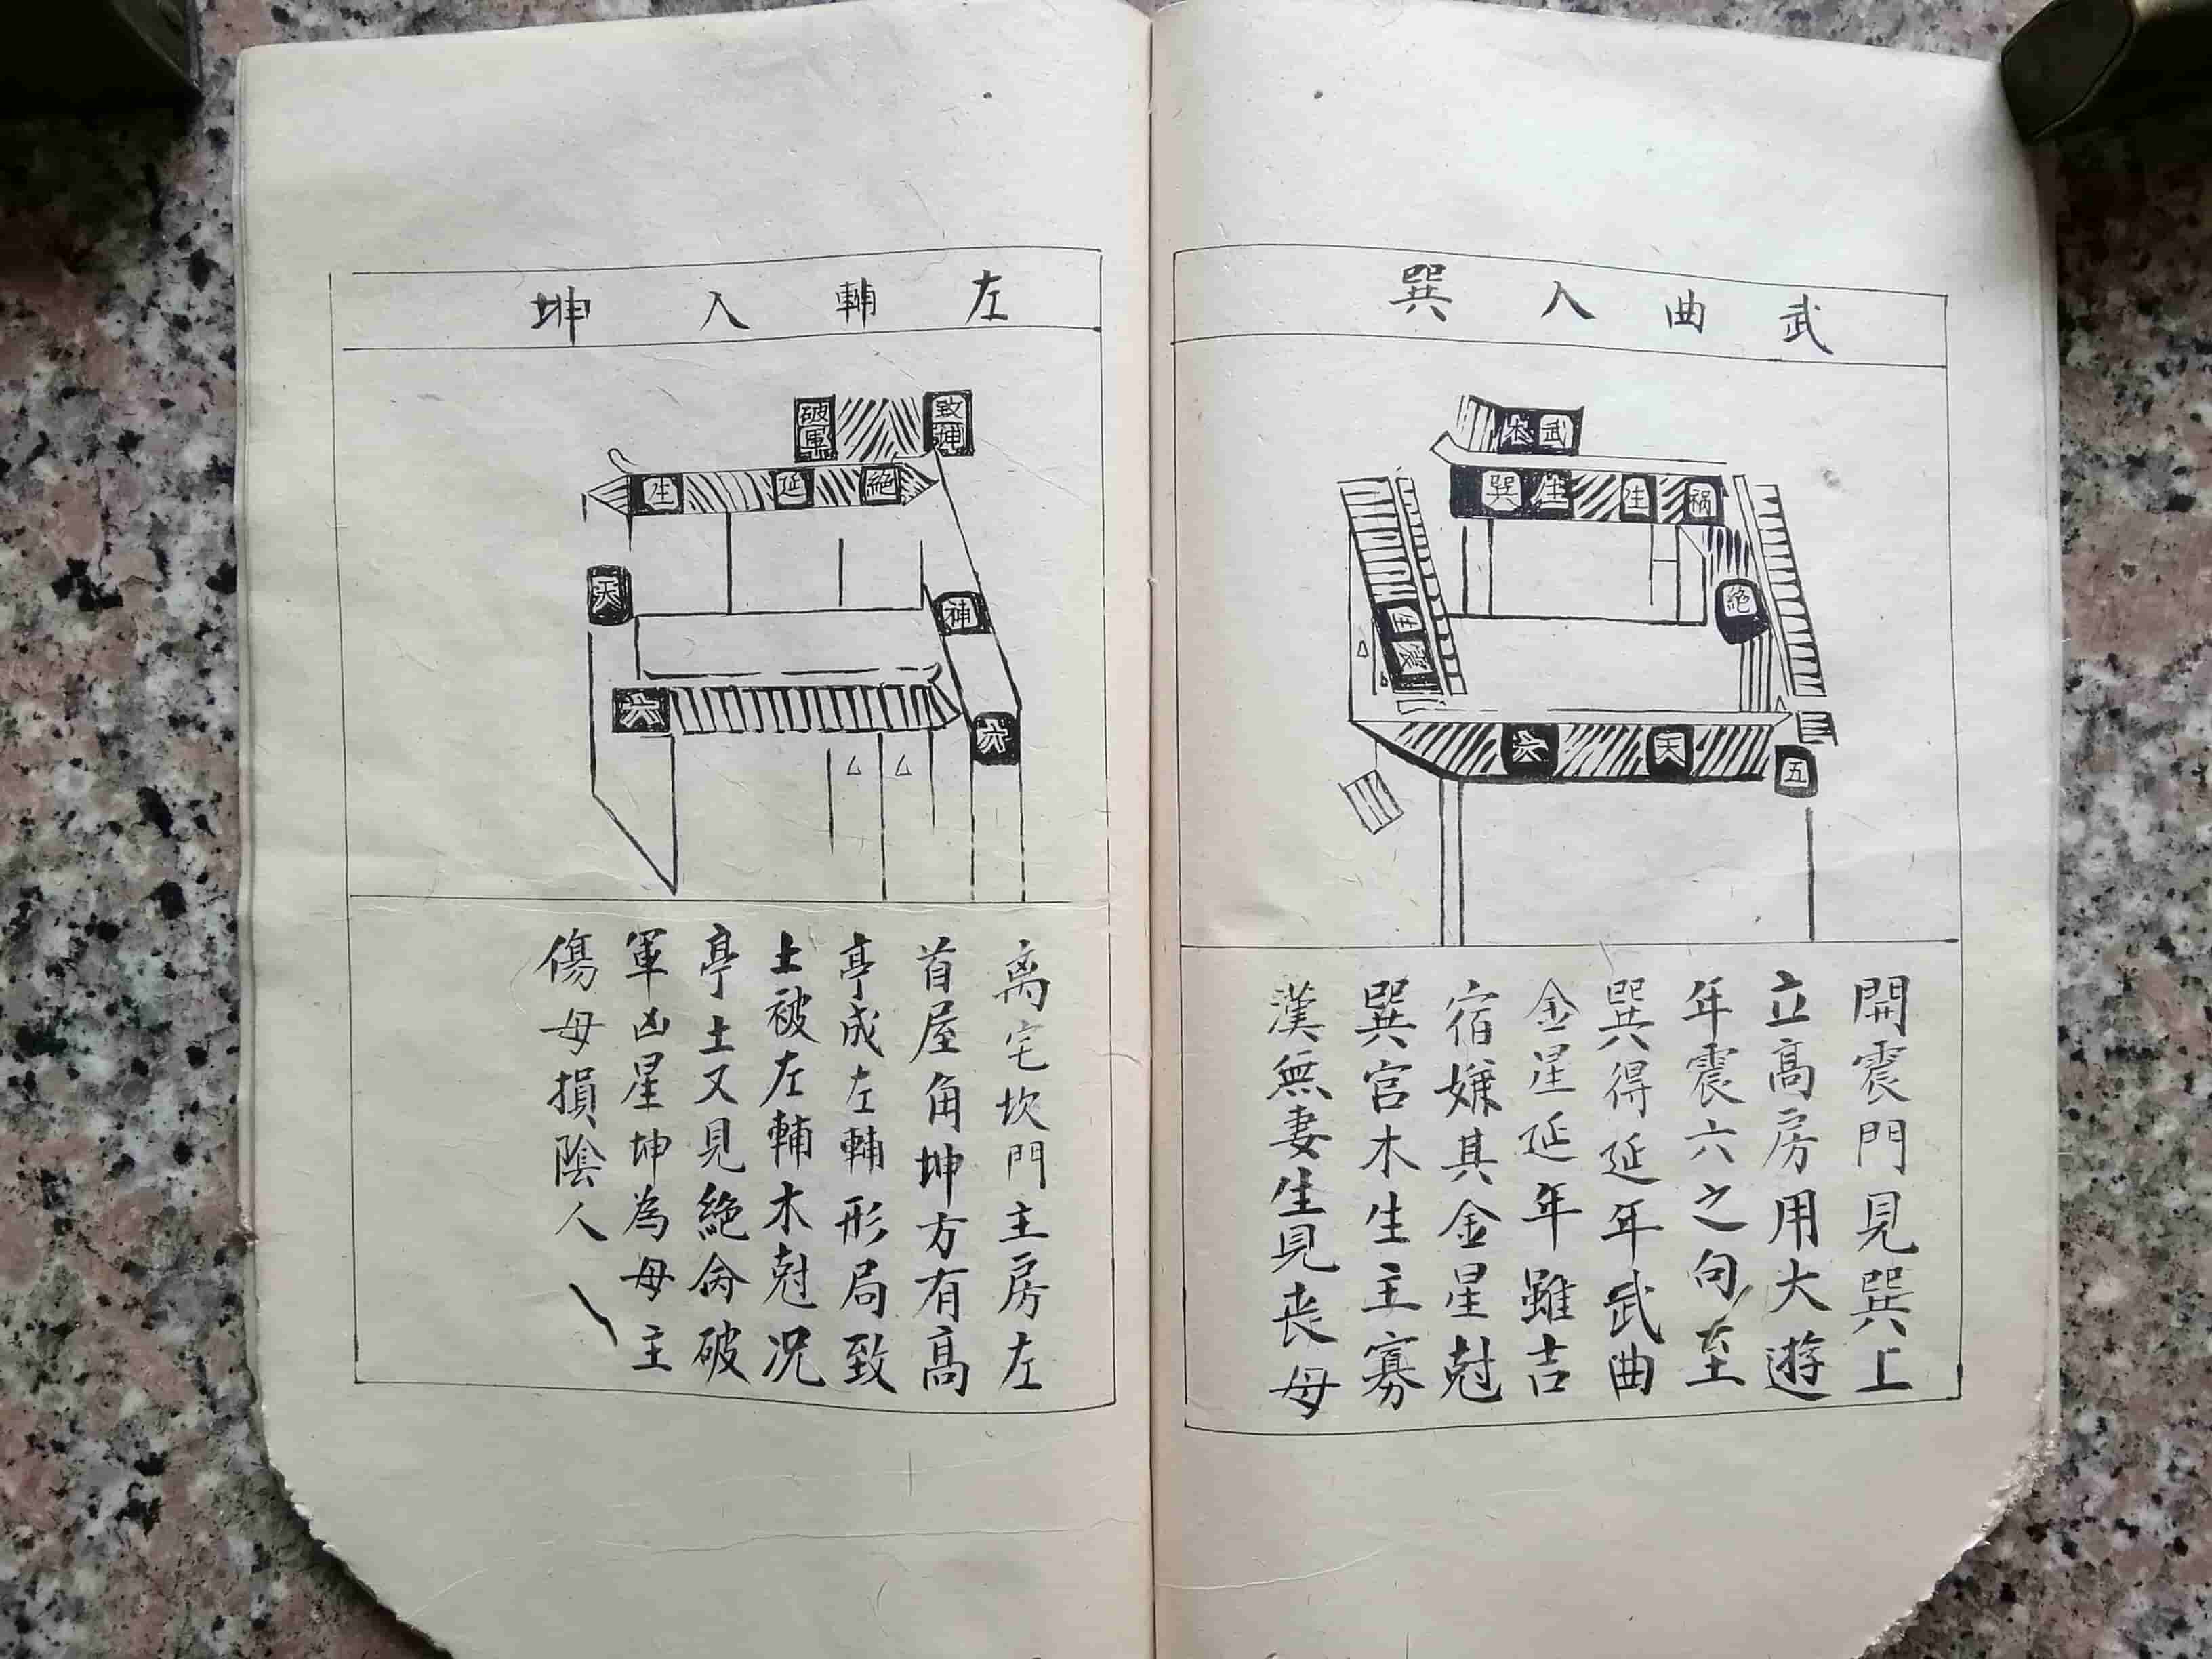 武曲入巽
武
巽
生
禍
絕
六
天
五
開震門見巽上
立高房用大遊
年震六之句至
巽得延年武曲
金星延年雖吉
宿嫌其金星尅
巽宮木生主寡
漢無妻生見丧母
左輔入坤
破軍
致坤
生
延
絕
天
神
六
六
离宅坎門主房左
首屋角坤方有高
亭成左輔形局致
土被左輔木尅况
亭土又見絕命破
軍凶星坤為母主
傷母損陰人